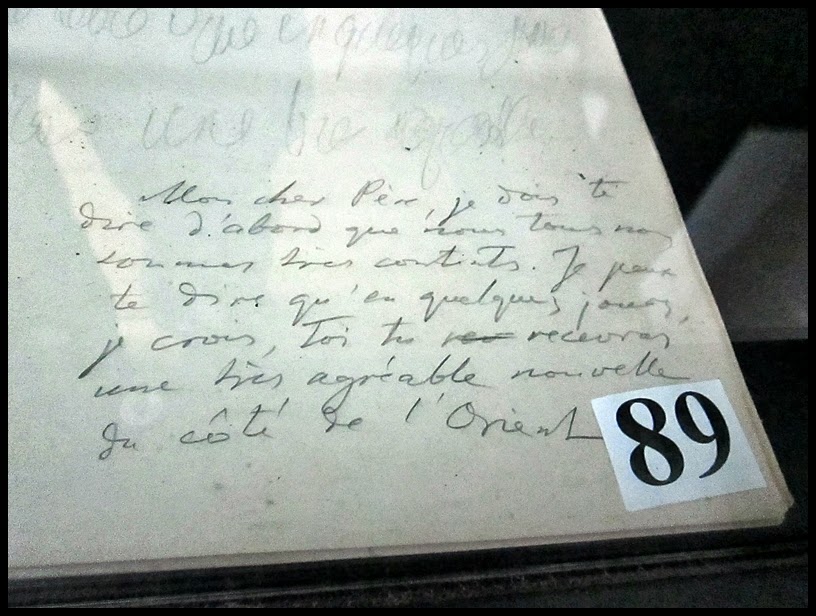 une
Mon cher Père, je dois te
dire d'abord que nous tous nous
sommes très contents. Je peux
te dire qu'en quelques jours,
je crois, toi tu re recevras
une très agréable nouvelle
du côté de l'Orient
89